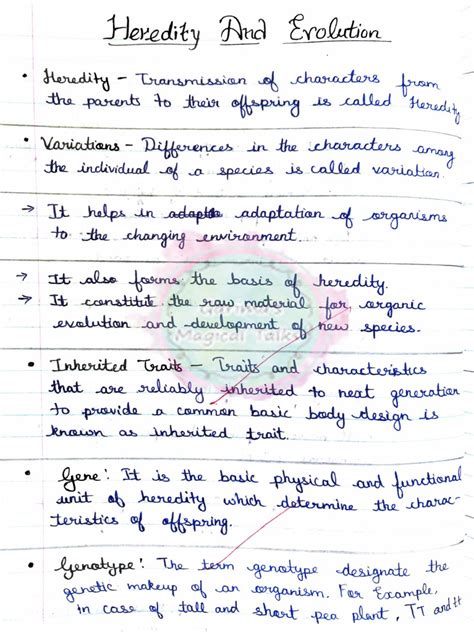 Heredity And Evolution
• Heredity – Transmission of characters from
the parents to their offspring is called Heredity
• Variations – Differences in the characters among
the individual of a species is called variation.
→ It helps in adaptation of organisms
to the changing environment.
→ It also forms the basis of heredity.
→ It constitut the raw material for organic
evolution and development of new species.
Garima's
Magical Talks
• Inherited Traits – Traits and characteristics
that are reliably inherited to next generation
to provide a common basic body design is
known as inherited trait.
• Gene: It is the basic physical and functional
unit of heredity which determine the charac-
teristics of offspring.
• Genotype: The term genotype designate the
genetic makeup of an organism. For Example,
in case of tall and short pea plant, TT and tt